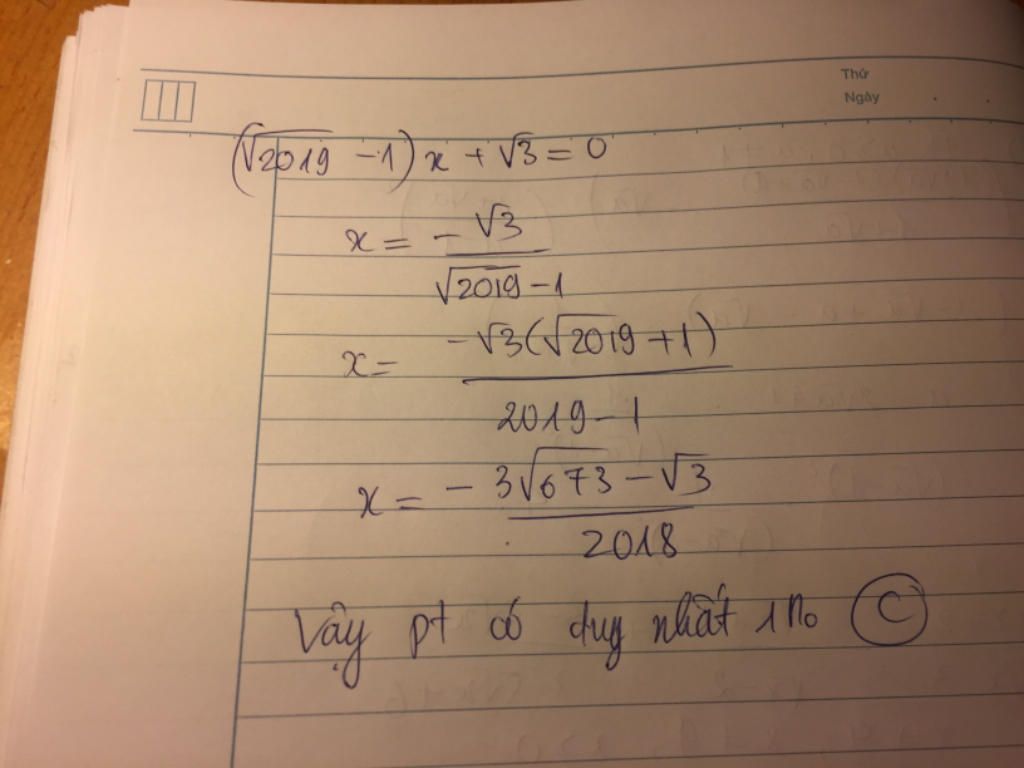 Thứ
Ngày
(√2019 - 1) x + √3 = 0
x = - √3 / √2019 - 1
x = -√3(√2019 + 1) / 2019 - 1
x = - 3√673 - √3 / 2018
Vậy pt có duy nhất 1 n₀ C